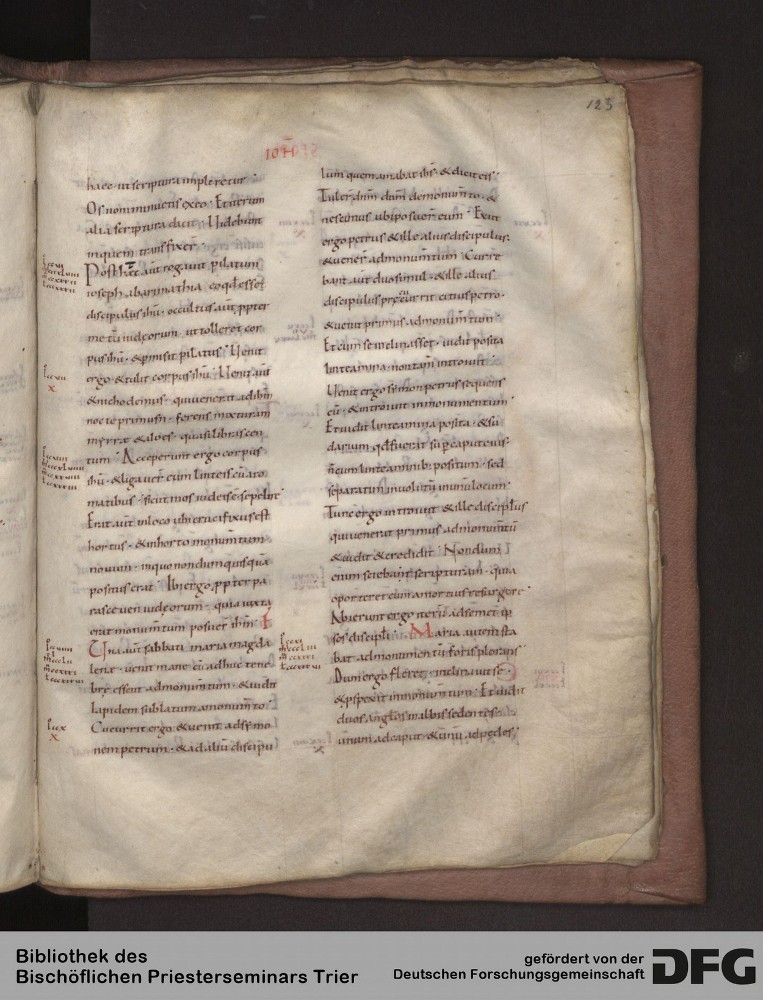 123
IOHANNES
haec · ut scriptura impleretur ·
Os non minuetis ex eo · Et iterum
alia scriptura dicit · Uidebunt
in quem transfixer̄ ·
Post haec aūt rogauit pilatum
ioseph ab arimathia · eo qđ esset
discipulus ihū · occultus aūt ꝓpter
metū iudęorum · ut tolleret cor
pus ihū · & ꝑmisit pilatus · Uenit
ergo · & tulit corpus ihū · Uenit aūt
& nichodemus · qui uenerat ad ihm̄
nocte primum · ferens mixturam
myrrae & aloes · quasi libras cen
tum · Acceperunt ergo corpus
ihū · & ligauer̄ eum linteis cū aro
matibus · sicut mos iudeis ē sepelire
Erat aūt in loco ubi crucifixus est
hortus · & in horto monumentum
nouum · in quo nondum quisquā
positus erat · Ibi ergo ꝓpter pa
rasceuen iudęorum · quia iuxta
erat monumtum posuer̄ ihm̄ ·
Una aūt sabbati maria magda
lene · uenit mane cū adhuc tene
brę essent ad monumtum · & uidit
lapidem sublatum a monumto ·
Cucurrit ergo & uenit ad symo
nem petrum · & ad aliū discipu
lum quem amabat ihs̄ · & dicit eis ·
Tuler̄ dn̄m dn̄m de monumto · &
nescimus ubi posuer̄ eum · Exiit
ergo petrus & ille alius discipulus ·
& uener̄ ad monumtum · Curre
bant aūt duo simul · & ille alius
discipulus praecucurrit citius petro ·
& uenit primus ad monumtum ·
Et cum se inclinasset · uidit posita
linteamina · non tam̄ introiuit ·
Uenit ergo symon petrus sequens
eū · & introiuit in monumentum ·
Et uidit linteamina posita · & su
darium qđ fuerat sup̄ caput eius ·
n̄ cum linteaminib; positum · sed
separatim inuolutū in unū locum ·
Tunc ergo introiuit & ille discipulus
qui uenerat primus ad monumtū
& uidit & credidit · Nondum
enim sciebant scripturam · quia
oporteret eum a mortuis resurgere ·
Abierunt ergo iterū ad semet ip
sos discipli · Maria autem sta
bat ad monumentū foris plorans
Dum ergo fleret · inclinauit se ·
& ꝓspexit in monumtum · Et uidit
duos anglos in albis sedentes ·
unum ad caput · & unū ad pedes ·
Bibliothek des
Bischöflichen Priesterseminars Trier
gefördert von der
Deutschen Forschungsgemeinschaft
DFG